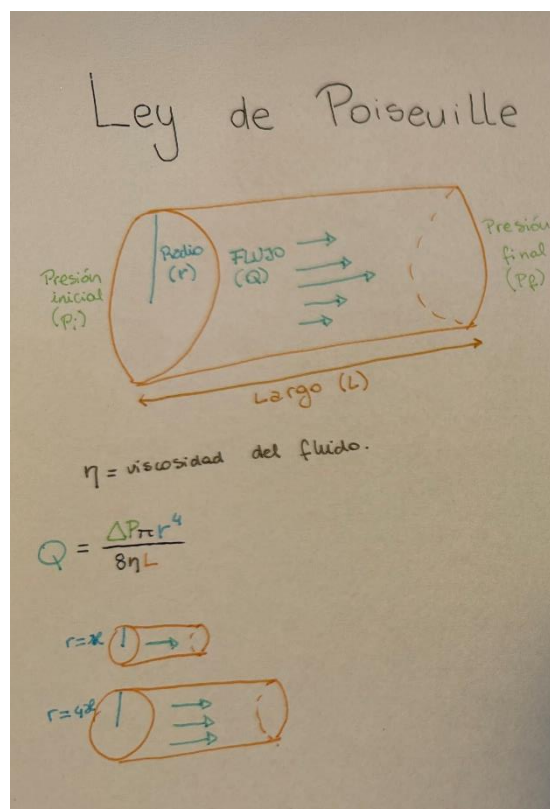 Ley de Poiseuille
Presión
inicial
(Pi)
Radio
(r)
FLUJO
(Q)
Presión
final
(Pf)
Largo (L)
η = viscosidad del fluido.
Q = ΔPπr⁴ / 8ηL
r=x
r=4x